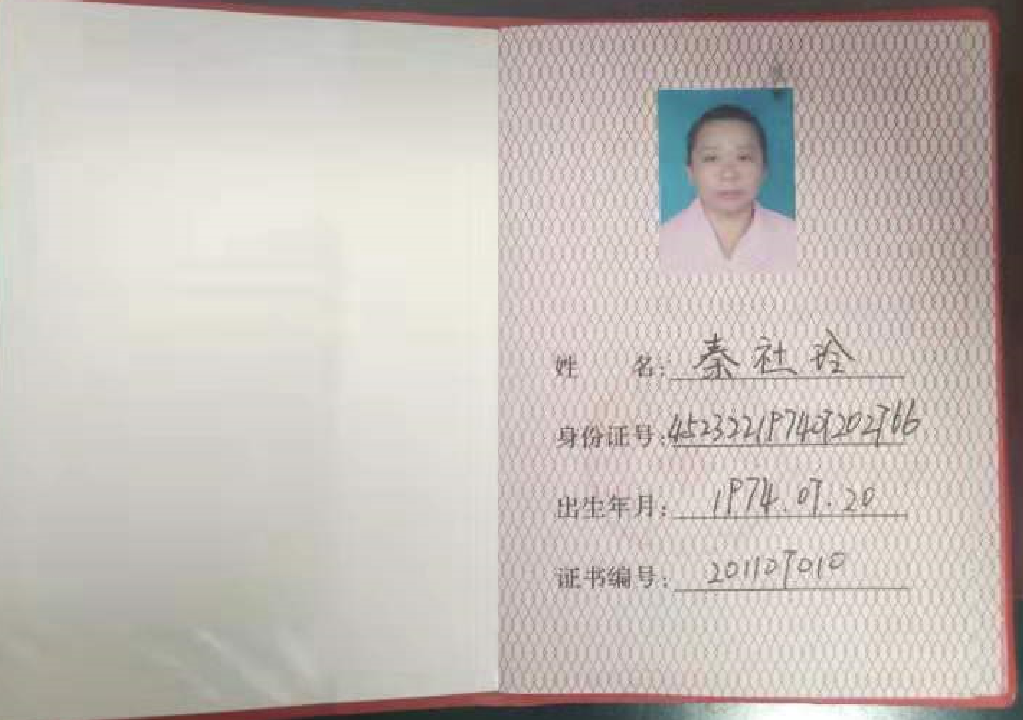 姓 名：秦社玲
身份证号：452322197409202766
出生年月：1974.09.20
证书编号：201109010